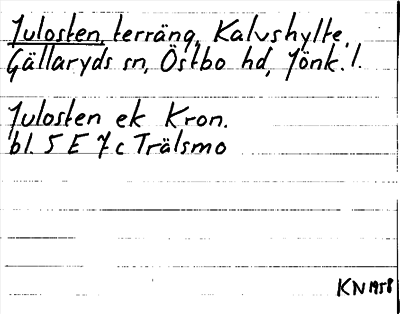 Julosten, terräng, Kalvshylte,
Gällaryds sn, Östbo hd, Jönk. l.
Julosten ek Kron.
bl. 5 E 7 c Trälsmo
KN 1958